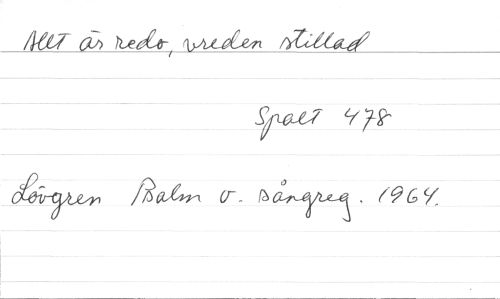 Allt är redo, vreden stillad
Spalt 478
Lövgren Psalm o. sångreg. 1964.